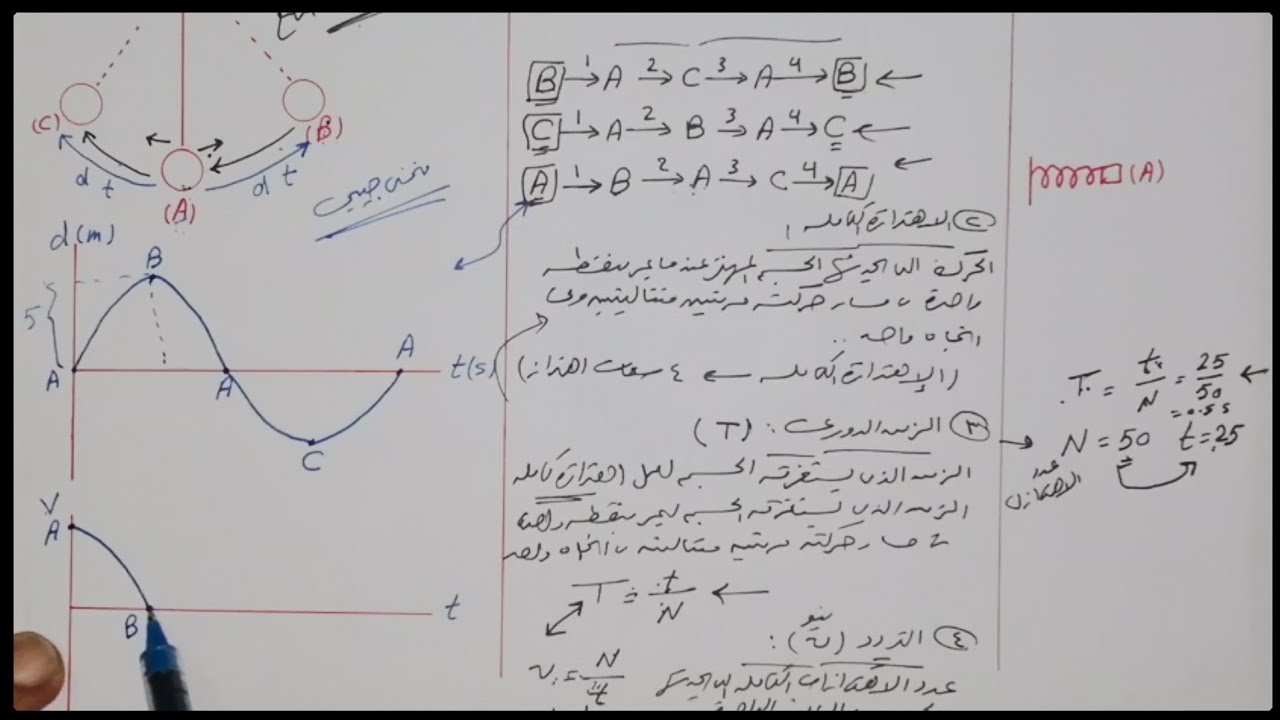 (C)
(B)
(A)
d t
d t
منحنى جيبي
d(m)
B
5
A
A
A
t(s)
C
V
A
B
t
B →1 A →2 C →3 A →4 B ←
C →1 A →2 B →3 A →4 C ←
A →1 B →2 A →3 C →4 A ←
② الاهتزازة الكاملة
الحركة التي يحدثها الجسم المهتز عندما يمر بنقطة
واحدة في مسار حركته مرتين متتاليتين وفي
اتجاه واحد ..
(الإهتزازة الكاملة ← ٤ سعات اهتزاز)
③ الزمن الدوري : (T)
الزمن الذي يستغرقه الجسم لعمل اهتزازة كاملة
الزمن الذي يستغرقه الجسم ليمر بنقطة واحدة
في مسار حركته مرتين متتاليتين في اتجاه واحد
T = t/N ←
④ التردد (ν) :
نيو
عدد الاهتزازات الكاملة التي يحدثها
ν = N/t
(A)
T = t/N = 25/50 ←
= 0.5 s
→ N = 50 t = 25
عدد
الاهتزازات